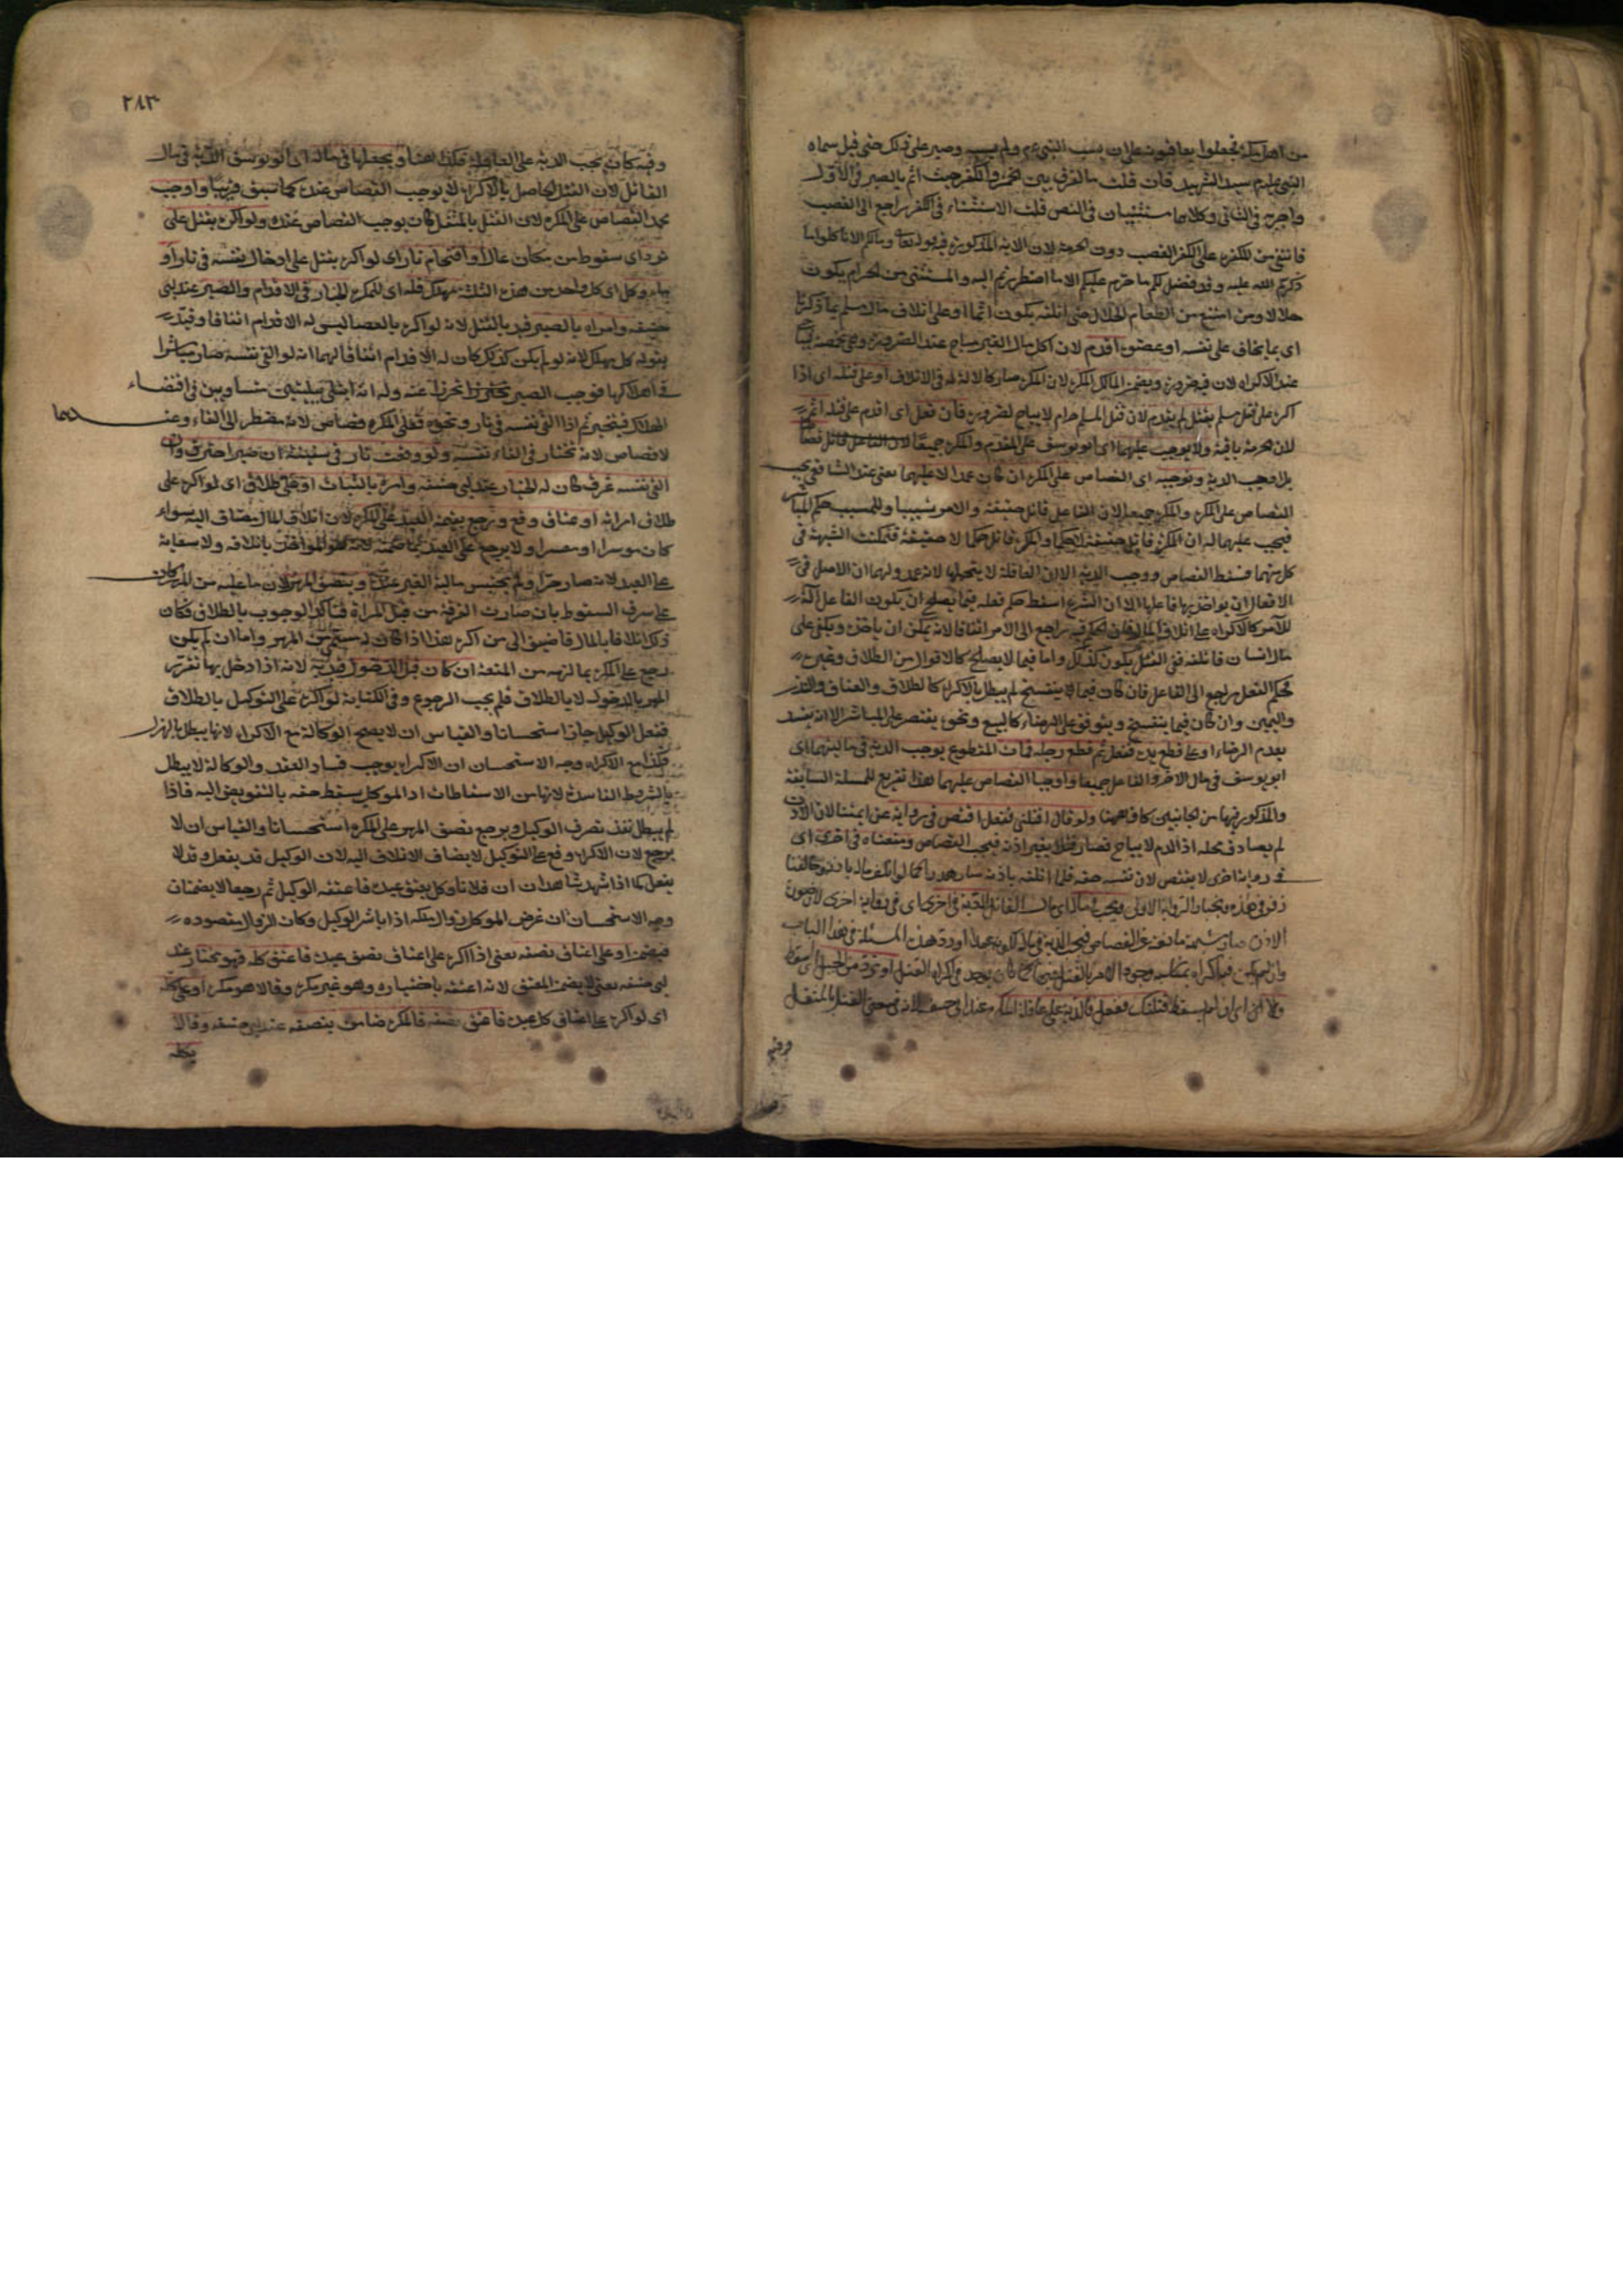 من اهل مكة فجعلوا يعاقبونه على ان يسب النبي عم ولم يسبه وصبر على ذلك حتى قتل سماه
النبي علم سيد الشهيد فان قلت ما الفرق بين الخمر والكفر حيث اثم بالصبر في الاول
واجر به في الثاني وكلاهما مستثنيان في النص قلت الاستثناء في الكفر راجع الى الغضب
فانتفى من المكره على الكفر الغضب دون الحرمة لان الاية المذكورة قوله تعا وما لكم الا تاكلوا مما
ذكر اسم الله عليه وقد فصل لكم ما حرم عليكم الا ما اضطررتم اليه والمستثنى من الحرام يكون
حلالا ومن امتنع من الطعام الحلال حتى اتلفه يكون اثما او على اتلاف مال مسلم بما ذكرنا
اى بما يخاف على نفسه او عضوه اقدم لان اكل مال الغير مباح عند الضرورة وهي مخمصة
عند الاكراه لان فيه ضرورة ويضمن المالك المكره لان المكره صار كالالة له في الاتلاف او على قتله اى اذا
اكره على قتل مسلم بقتل لم يقدم لان قتل المسلم حرام لا يباح لضرورة فان فعل اى اقدم على قتله اثم
لان الحرمة باقية ولا يوجب عليهما اى ابو يوسف على المقدم والمكره جميعا لان الفاعل قاتل
بل اوجب الدية ونوجبه اى القصاص على المكره ان كان عمدا لا عليهما يعني عند الشافعي يجب
القصاص على المكره والمكره جميعا لان الفاعل قاتل حقيقة والامر تسبيبا وللمسبب حكم المباشر
فيجب عليهما له ان المكره قاتل حقيقة لا حكما والمكره قاتل حكما لا حقيقة فتمكنت الشبهة في
كل منهما فسقط القصاص ووجب الدية الا ان العاقلة لا يتحملها لانه عمد ولهما ان الاصل في
الافعال ان يواخذ بها فاعلها الا ان الشرع اسقط حكم فعله فيما يصلح ان يكون الفاعل الة
للآمر كالاكراه على اتلاف المال فان الحكم فيه راجع الى الامر اتفاقا لانه يمكن ان ياخذه ويلقى على
مال انسان فاتلفه ففي القتل يكون كذلك واما فيما لا يصلح كالاقوال من الطلاق وغيره
فحكم الفعل يرجع الى الفاعل فان كان فيما لا ينفسخ لم يبطل بالاكراه كالطلاق والعتاق والنذر
واليمين وان كان فيما ينفسخ ويتوقف على الرضاء كالبيع ونحوه يقتصر على المباشر الا انه يفسد
بعدم الرضاء او على قطع يده ففعل ثم قطع رجله فمات المقطوع يوجب الدية في ماليهما اى
ابو يوسف في مال الامر والفاعل جميعا واوجبا القصاص عليهما هذا تفريع للمسئلة السابقة
والمذكور فيها من الجانبين كاف ههنا ولو قال اقتلنى فقتل اقتص في رواية عن ائمتنا لان الاذن
لم يصادف محله اذ الدم لا يباح فصار قتلا بغير اذنه فيجب القصاص ومنعناه في اخرى اى
في رواية اخرى لا يقتص لان نفسه حقه فلما اتلفه باذنه صار هدرا كما لو اتلف ماله باذنه
وفيه كان يجب الدية على العاقلة فكذا هنا ويجعلها في ماله اى ابو يوسف الدية في مال
القاتل لان القتل الحاصل بالاكراه لا يوجب القصاص عنده كما سبق قريبا واوجب
محمد القصاص على المكره لان القتل بالمثقل كان يوجب القصاص عنده ولو اكره بقتل على
تردى اى سقوط من مكان عال او اقتحام نار اى لو اكره بقتل على ادخال نفسه في نار او
ماء وكل اى كل واحد من هذه الثلثة مهلك فله اى للمكره الخيار في الاقدام والصبر عند ابى
حنيفه وامراه بالصبر قيد بالقتل لانه لو اكره بالعصا ليس له الاقدام اتفاقا وقيد
بقوله كل مهلك لانه لو لم يكن كذلك كان له الاقدام اتفاقا لهما انه لو القى نفسه صار مباشرا
في اهلاكها فوجب الصبر تحرزا عنه وله انه ابتلى ببليتين متساويين في افضاء
الهلاك فيتخير ثم اذا القى نفسه في نار ونحوه فعلى المكره قصاص لانه مضطر الى الالقاء وعندهما
لا قصاص لانه مختار في القاء نفسه ولو وقعت نار في سفينة ان صبر احترق وان
القى نفسه غرق كان له الخيار عند ابى حنيفه وامره بالثبات او على طلاق اى لو اكره على
طلاق امراته او عتاق وقع ويرجع بقيمة العبد على المكره لان اتلاف المال مضاف اليه سواء
كان موسرا او معسرا ولا يرجع على العبد بما ضمنه لانه هو المواخذ باتلافه ولا سعاية
على العبد لانه صار حرا ولم يحتبس مالية الغير عنده وبنصف المهر لان ما عليه من المهر كان
على شرف السقوط بان صارت الفرقة من قبل المراة فتاكد الوجوب بالطلاق فكان
ذلك اتلافا بالمال فاضيف الى من اكره هذا اذا كان سمى من المهر واما ان لم يكن
يرجع على المكره بما لزمه من المتعة ان كان قبل الدخول قيد به لانه اذا دخل بها تقرر
المهر بالدخول لا بالطلاق فلم يجب الرجوع وفي الكفاية لو اكره على التوكيل بالطلاق
ففعل الوكيل جاز استحسانا والقياس ان لا يصح الوكالة مع الاكراه لانها يبطل بالهزل
فكذا مع الاكراه وجه الاستحسان ان الاكراه يوجب فساد العقد والوكالة لا يبطل
بالشروط الفاسدة لانها من الاسقاطات اذ الموكل يسقط حقه بالتفويض اليه فاذا
لم يبطل نفذ تصرف الوكيل ويرجع بنصف المهر على المكره استحسانا والقياس ان لا
يرجع لان الاكراه وقع على التوكيل لا يضاف الاتلاف اليه لان الوكيل قد يفعل وقد لا
يفعل كما اذا شهد شاهدان ان فلانا وكل بعتق عبده فاعتقه الوكيل ثم رجعا لا يضمنان
وجه الاستحسان ان غرض الموكل زوال ملكه اذا باشر الوكيل وكان الزوال مقصوده
فيضمن او على اعتاق نصفه يعني اذا اكره على اعتاق نصف عبده فاعتق كله فهو مختار عند
ابى حنيفه يعني لا يضمن المعتق لانه اعتقه باختياره وهو غير مكره وقالا هو مكره او على كله
اى لو اكره على اعتاق كل عبده فاعتق نصفه فالمكره ضامن بنصفه عند ابى حنيفه وقالا
بكله
٢٨٣